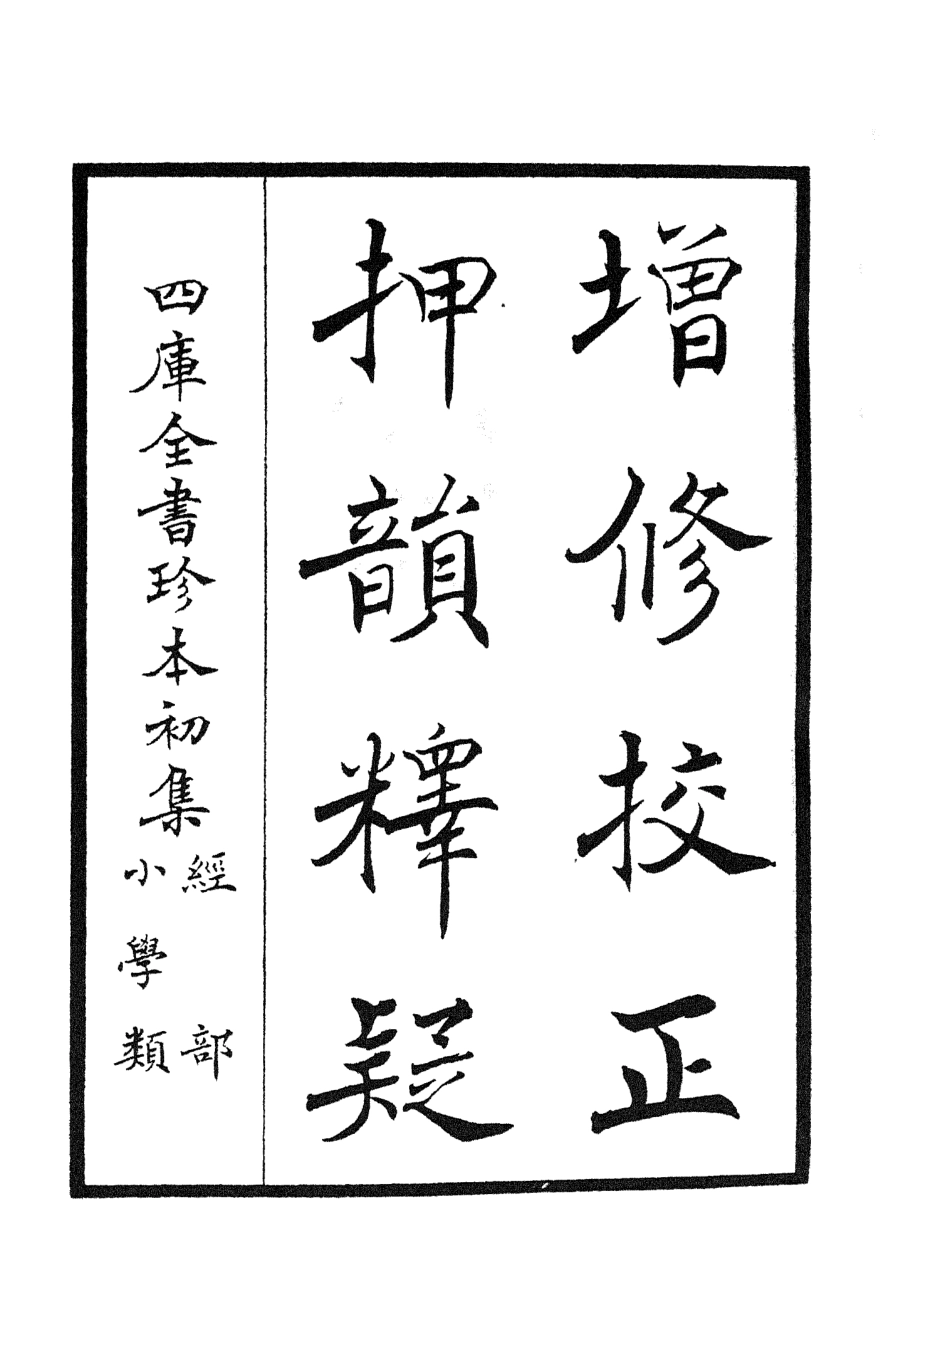 增修挍正
押韻釋疑
四庫全書珍本初集
經部
小學類